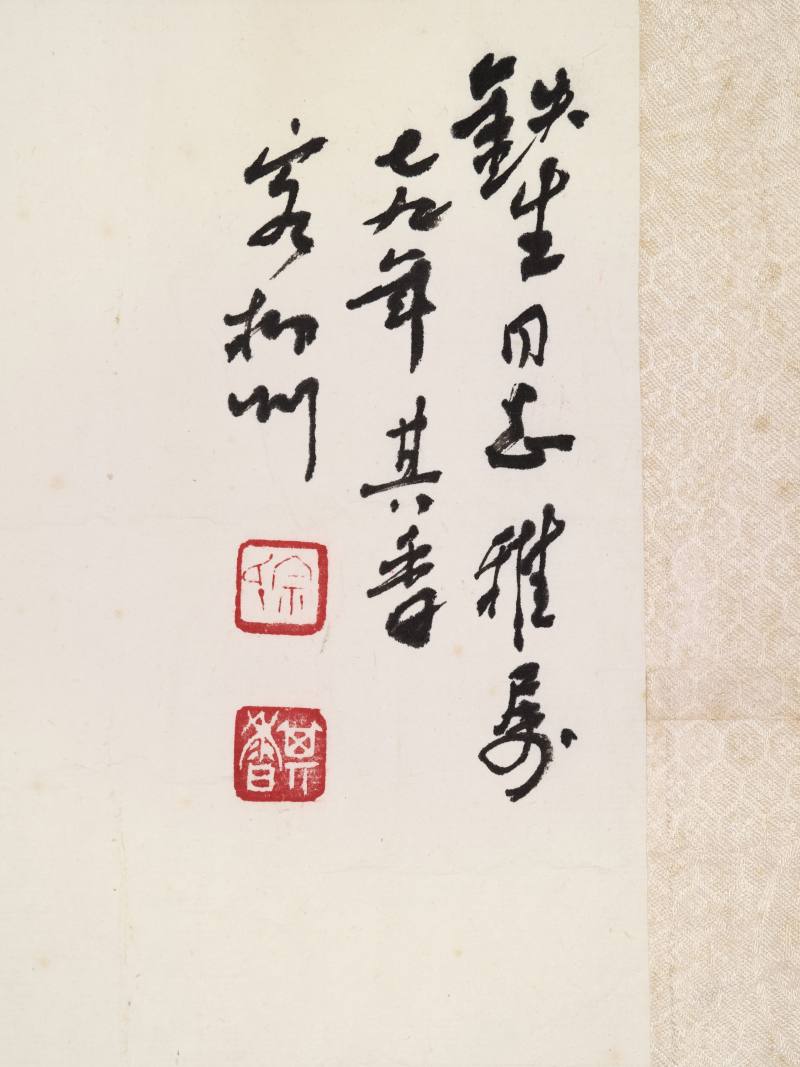 鉄生同志雅属
七九年其香
客柳州
徐
其香